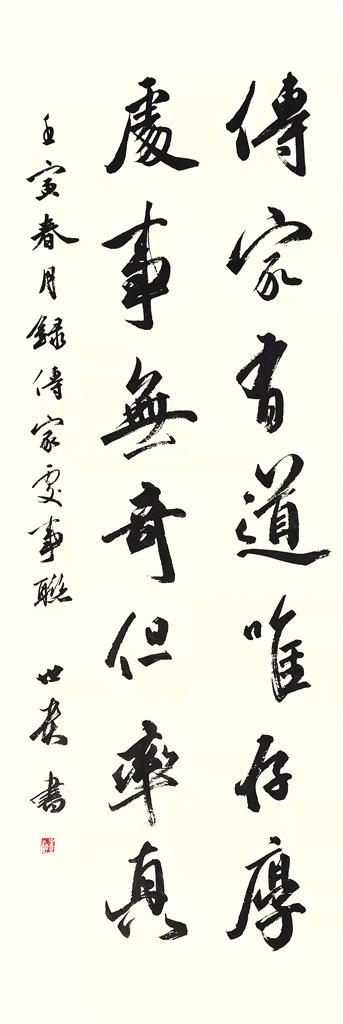 傳家有道唯存厚
處事無奇但率真
壬寅春月錄傳家處事聯 世英書